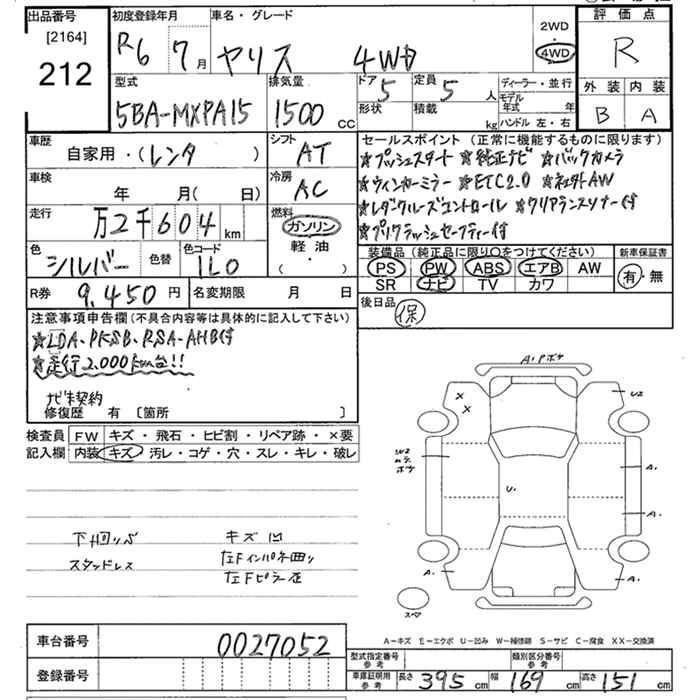 出品番号
[2164]
212
初度登録年月
R6 7月
車名・グレード
ヤリス 4WD
2WD
・
4WD
評価点
R
外装 内装
B A
型式
5BA-MXPA15
排気量
1500 CC
ドア 5
形状
定員 5 人
積載 kg
ディーラー・並行
モデル年式 年
ハンドル 左・右
車歴
自家用・(レンタ )
シフト
AT
車検
年 月( 日)
冷房
AC
走行
万2千604 km
燃料
ガソリン
軽油
( ・ )
色
シルバー
色替
色コード
1L0
R券 9,450円
名変期限 月 日
セールスポイント (正常に機能するものに限ります)
☆プッシュスタート ☆純正ナビ ☆バックカメラ
☆ウィンカーミラー ☆ETC2.0 ☆社外AW
☆レーダークルーズコントロール ☆クリアランスソナー付
☆プリクラッシュセーフティー付
装備品 (純正品に限り〇をつけてください)
PS PW ABS エアB AW
SR ナビ TV カワ
新車保証書
有・無
後日品
保
注意事項申告欄 (不具合内容等は具体的に記入して下さい)
☆LDA、PKSB、RSA・AHB付
☆走行2,000km台!!
ナビ未契約
修復歴 有 〔箇所 〕
検査員記入欄
FW キズ ・ 飛石 ・ ヒビ割 ・ リペア跡 ・ ×要
内装 キズ ・ 汚レ ・ コゲ ・ 穴 ・ スレ ・ キレ ・ 破レ
下回りサビ
スタッドレス
キズ 凹
左Fインパネ曲り
左Fピラー歪
A.Pボケ
X
X
U2
W2
ムラ
ボケ
A.
U.
A.
A.
A.
スペア
A-キズ E-エクボ U-凹み W-補修跡 S-サビ C-腐食 XX-交換済
車台番号 0027052
登録番号
型式指定番号
参考
類別区分番号
参考
車庫証明用
参考
長さ 395 cm 幅 169 cm 高さ 151 cm